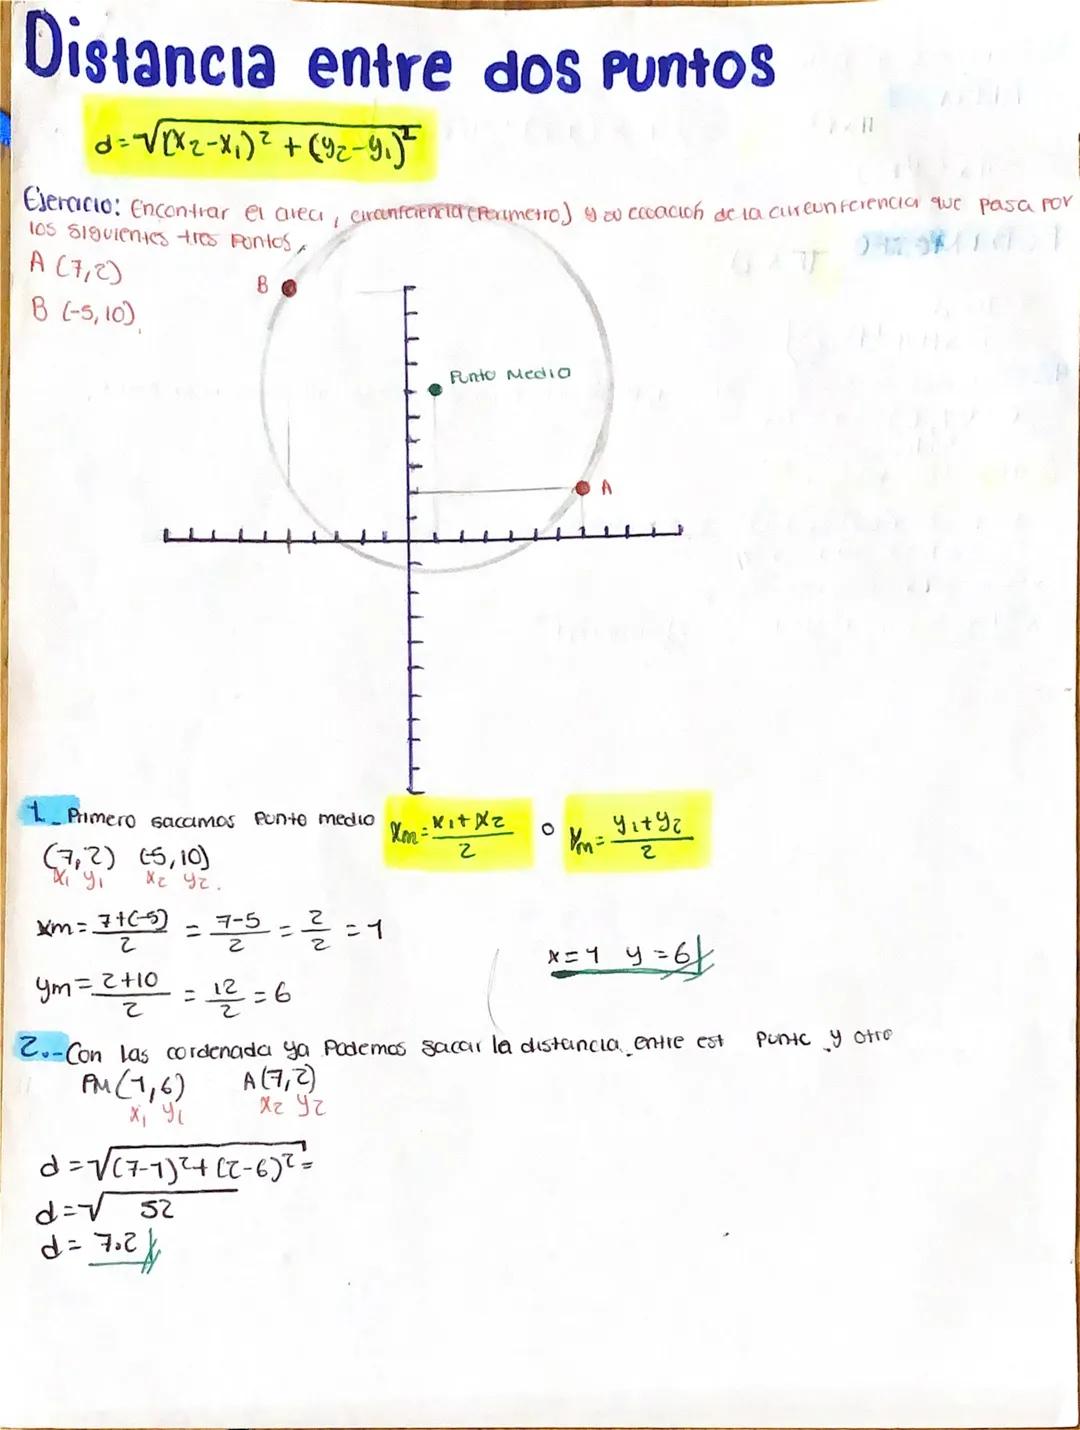 Distancia entre dos puntos
d=√(x₂-x₁)²+(y₂-y₁)²
Ejercicio: Encontrar el area, circunferencia (Perimetro) y su ecuación de la circunferencia que pasa por
los siguientes tres puntos
A (7,2)
B (-5,10)
B
Punto Medio
A
1_ Primero sacamos Punto medio Xm=x₁+x₂/2 o Ym=y₁+y₂/2
(7,2) (-5,10)
x₁ y₁ x₂ y₂.
xm=7+(-5)/2 = 7-5/2 = 2/2 = 1
x=1 y=6
ym=2+10/2 = 12/2 = 6
2.-Con las cordenada ya Podemos sacar la distancia entre est punto y otro
PM(1,6) A(7,2)
x₁ y₁ x₂ y₂
d=√(7-1)²+(2-6)²=
d=√52
d= 7.2